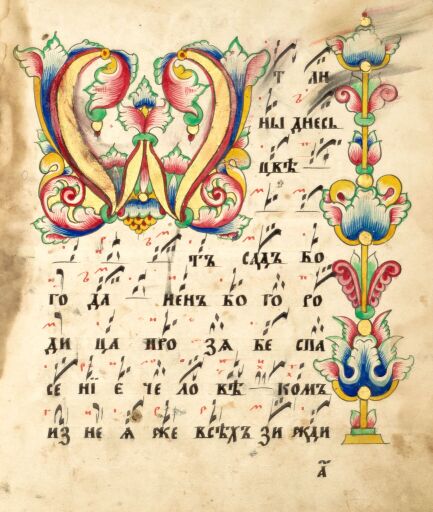 Ѡ т ли
ны днесь
цвѣ
тъ садъ бо
го да ненъ бо го ро
ди ца про зѧ бе спа
се нїе че ло вѣ комъ
из не ѧ же всѣхъ зи жди
а҃